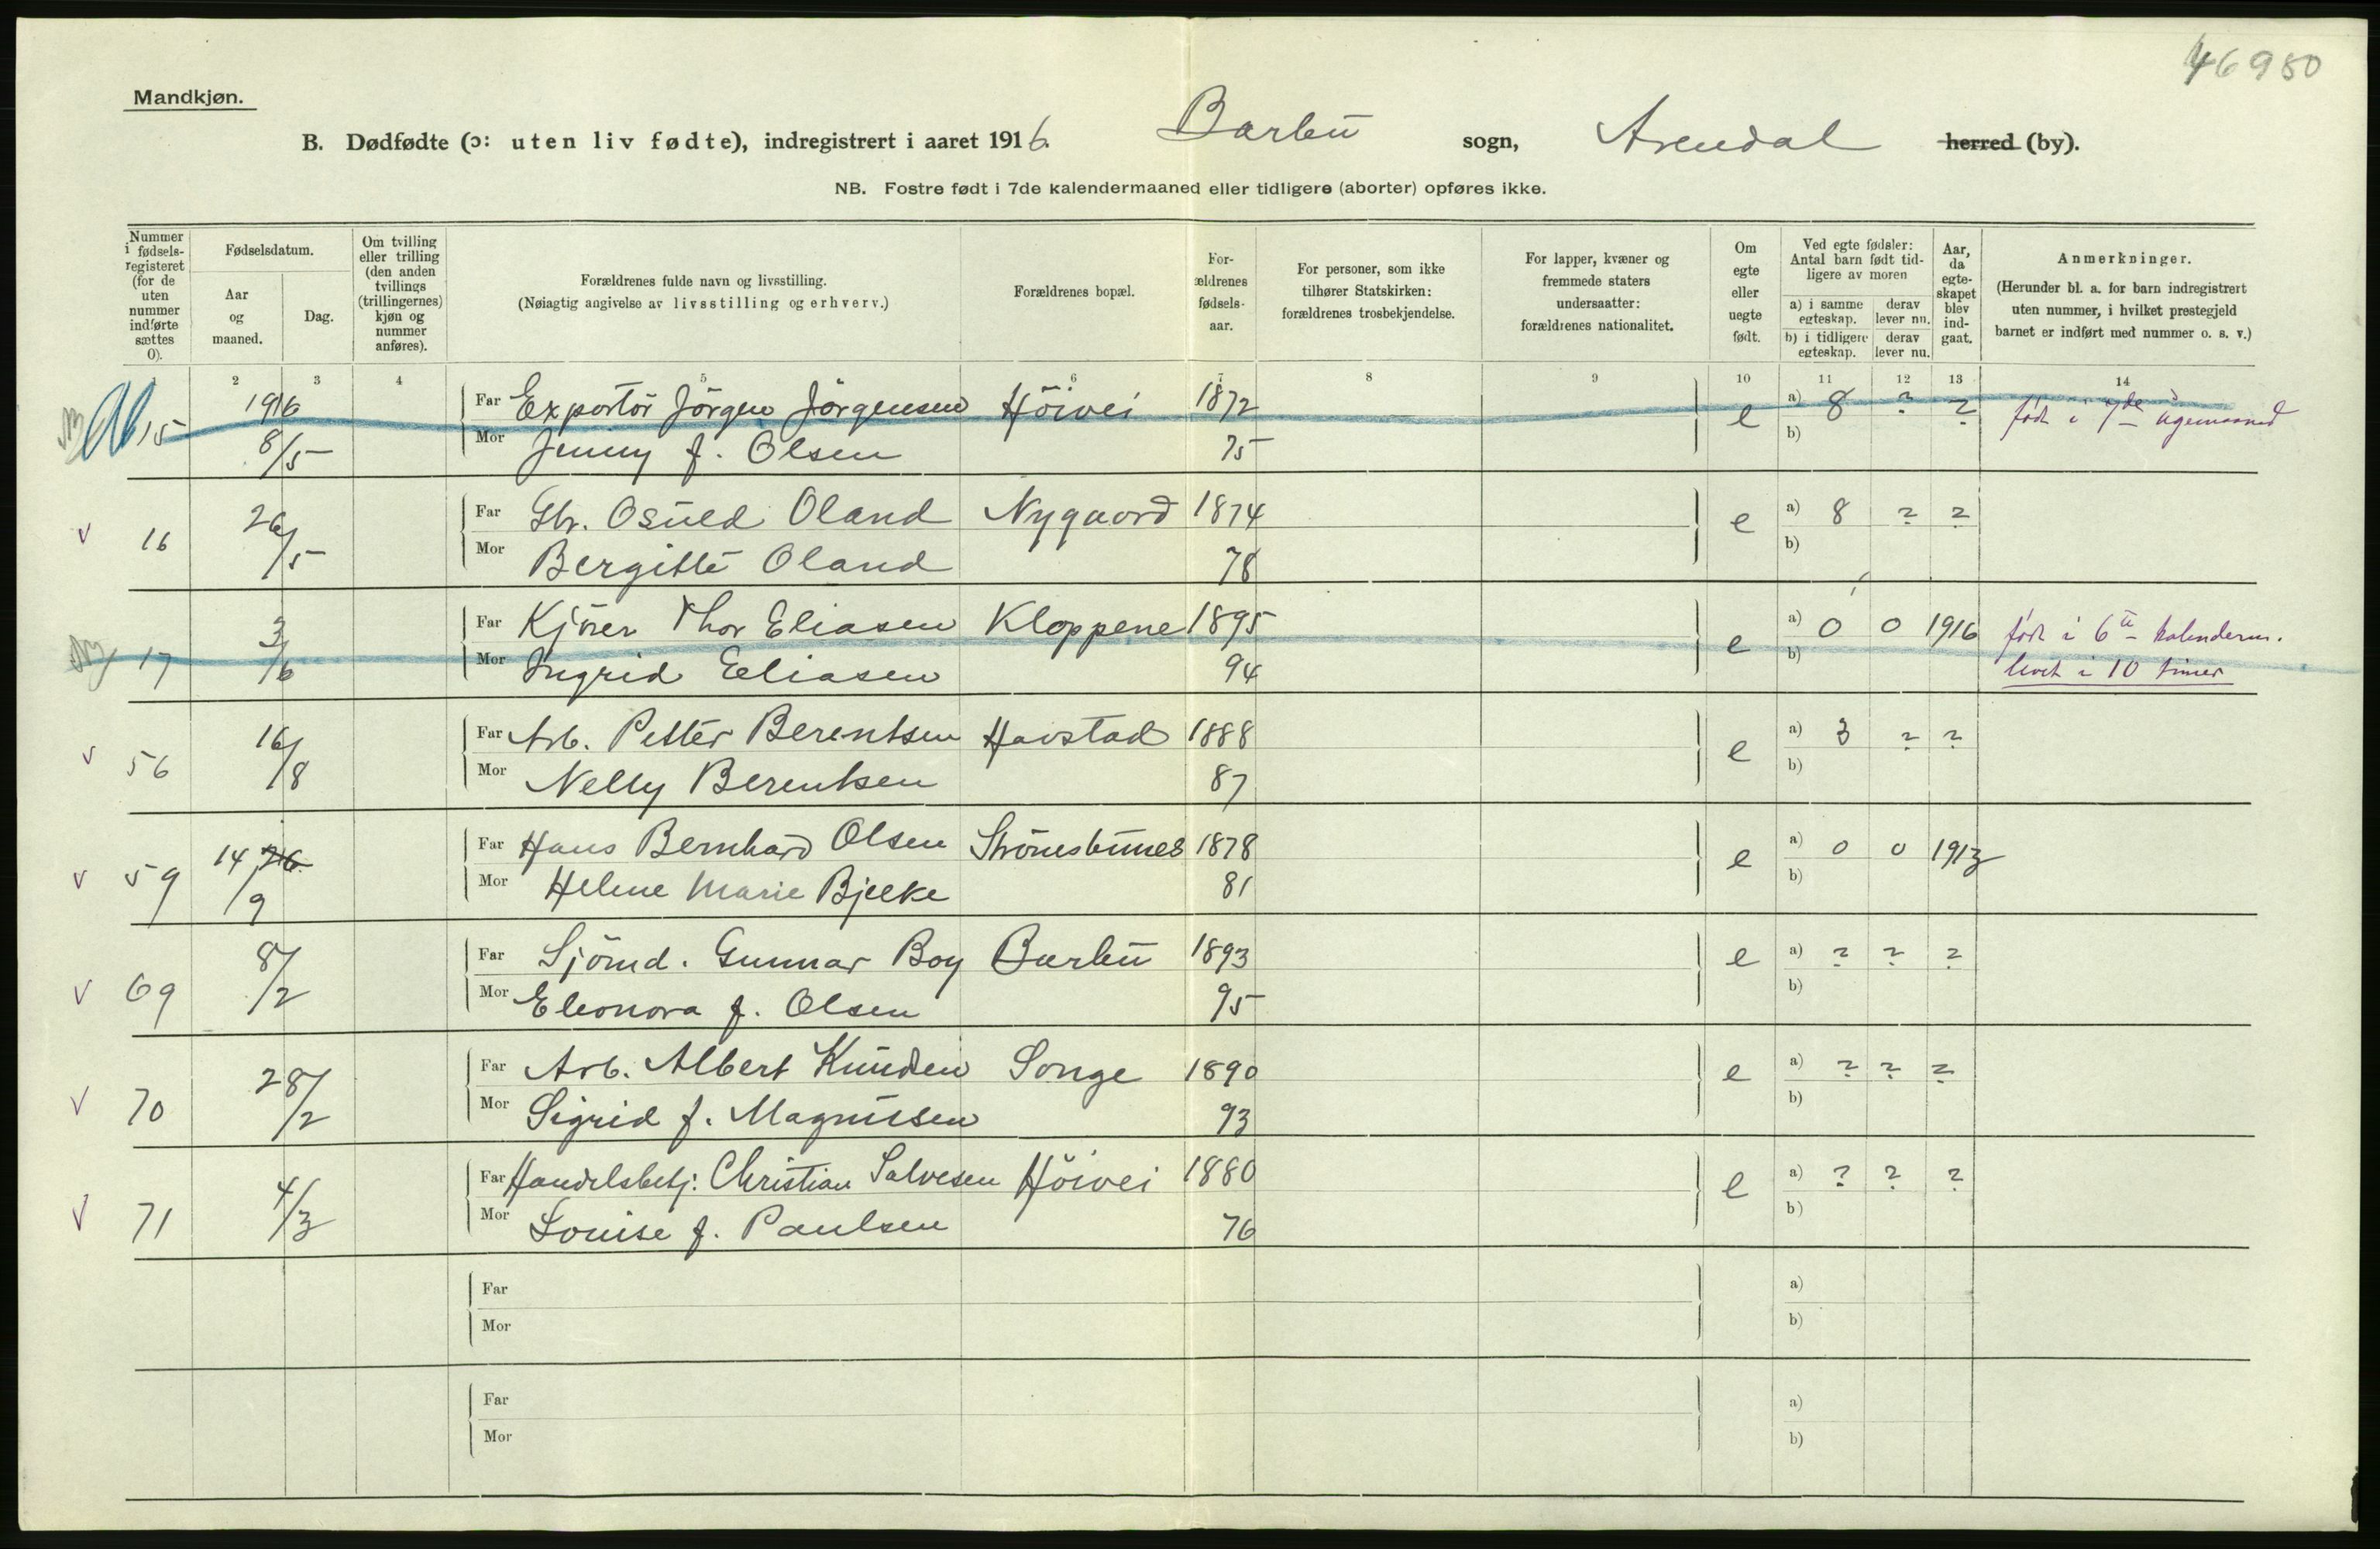 46980
Mandkjøn.
B. Dødfødte (ɔ: uten liv fødte), indregistrert i aaret 1916. Barbu sogn, Arendal herred (by).
NB. Fostre født i 7de kalendermaaned eller tidligere (aborter) opføres ikke.
Nummer i fødselsregisteret (for de uten nummer indførte sættes 0).
Fødselsdatum.
Aar og maaned.
Dag.
Om tvilling eller trilling (den anden tvillings (trillingernes) kjøn og nummer anføres).
Forældrenes fulde navn og livsstilling.
(Nøiagtig angivelse av livsstilling og erhverv.)
Forældrenes bopæl.
Forældrenes fødselsaar.
For personer, som ikke tilhører Statskirken: forældrenes trosbekjendelse.
For lapper, kvæner og fremmede staters undersaatter: forældrenes nationalitet.
Om egte eller uegte født.
Ved egte fødsler: Antal barn født tidligere av moren
a) i samme egteskap. derav lever nu.
b) i tidligere egteskap. derav lever nu.
Aar, da egteskapet blev indgaat.
Anmerkninger.
(Herunder bl. a. for barn indregistrert uten nummer, i hvilket prestegjeld barnet er indført med nummer o. s. v.)
1 2 3 4 5 6 7 8 9 10 11 12 13 14
15 1916 8/5 Far Exportör Jörgen Jörgensen Höivei 1872 e a) 8 ? ? født i 7de
Mor Jenny f. Olsen 75 b)
16 26/5 Far Gbr. Osuld Oland Nygaard 1874 e a) 8 ? ?
Mor Bergitte Oland 78 b)
17 3/6 Far Kjörer Thor Eliasen Kloppene 1895 e a) 0 0 1916 født i 6te kalenderm.
Mor Ingrid Eliasen 94 b) levet i 10 timer
v 56 16/8 Far Arb. Petter Berentsen Havstad 1888 e a) 3 ? ?
Mor Nelly Berentsen 87 b)
v 59 14 26/9 Far Hans Bernhard Olsen Strömsbunes 1878 e a) 0 0 1913
Mor Helene Marie Bjelke 81 b)
v 69 8/2 Far Sjömd. Gunnar Boy Barbu 1893 e a) ? ? ?
Mor Eleonora f. Olsen 95 b)
v 70 28/2 Far Arb. Albert Knudsen Songe 1890 e a) ? ? ?
Mor Sigrid f. Magnussen 93 b)
v 71 4/3 Far Handelsbetj. Christian Salvesen Höivei 1880 e a) ? ? ?
Mor Louise f. Paulsen 76 b)
Far a)
Mor b)
Far a)
Mor b)